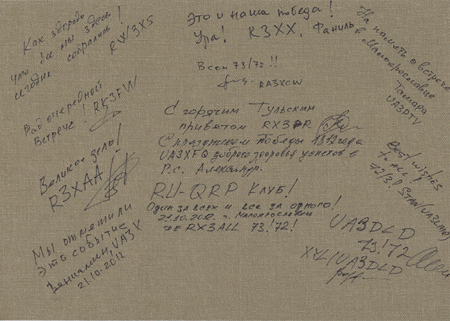 Как здорово
что все мы здесь
сегодня собрались
RX/3XS
Рад очередной
встрече! RK3FW
Великое дело!
R3XAA
Мы отметили
это событие
Вениамин, UA3X
21.10.2012
Это и наша победа!
Ура! R3XX, Фаниль
Всем 73/72!!
RA3XCW
С горячим Тульским
приветом RX3PR
С праздником Победы 1812 года
UA3XFQ доброго здоровья успехов в
Р.с. Александр.
RU-QRP Клуб!
Один за всех и все за одного!
21.10.2012 г. Малоярославец
de RX3ALL 73! 72!
На память о встрече
в Малоярославце
Тамара
UA3PTV
Best wishes
to all
UA3DLD
73! 72
XYL UA3DLD